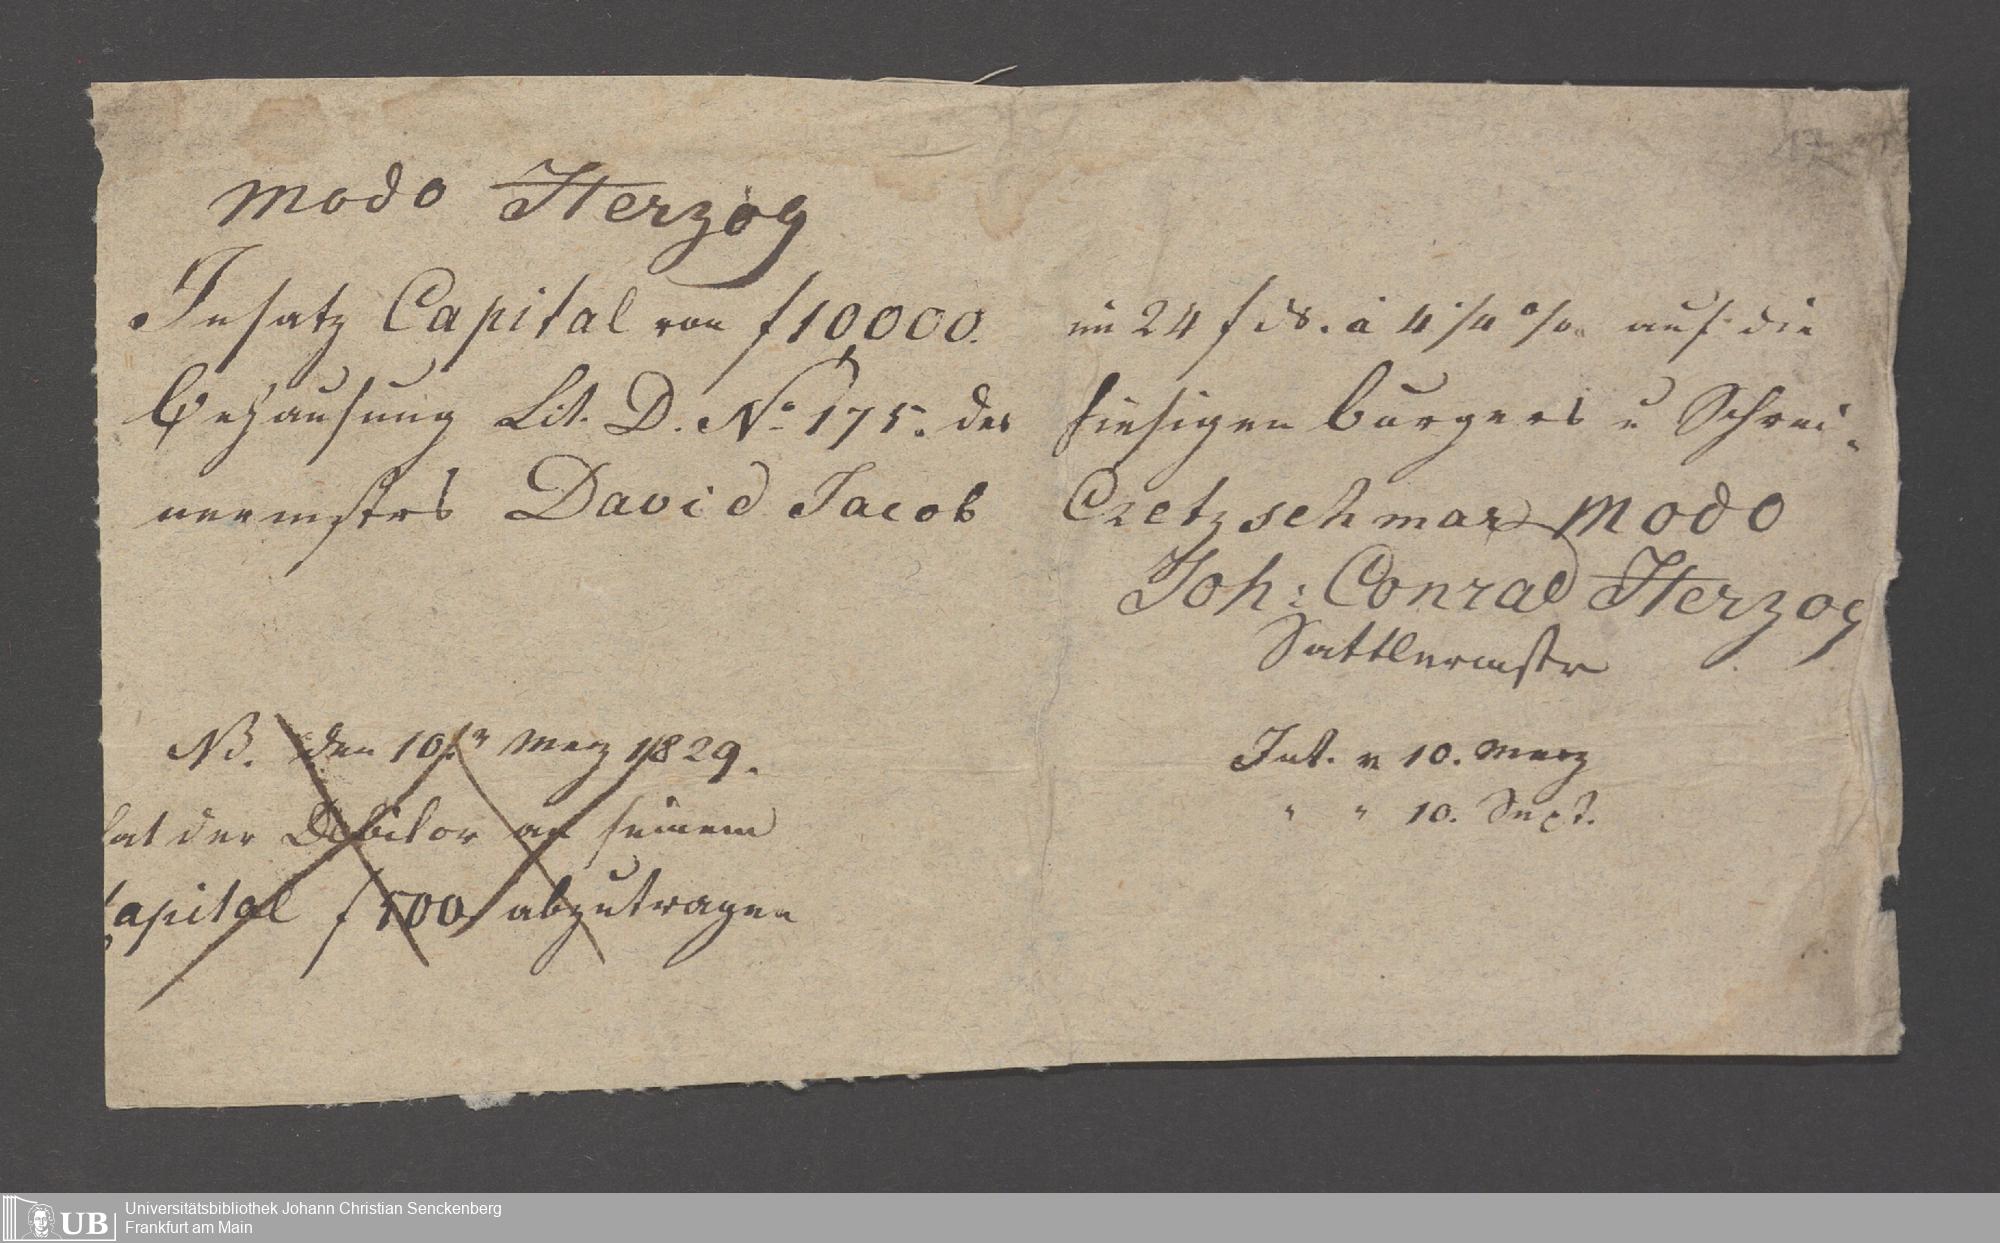 modo Herzog
Insatz Capital von f 10000. im 24 f ds. à 4 1/4 % auf die
Behausung Lit. D. No. 175. des hiesigen burgers u Schrei-
nermstrs David Jacob Cretzschmar modo
Joh: Conrad Herzog
Sattlermstr
NB. den 10tn Merz 1829.
hat der Debitor an seinem
Capital f 500 abzutragen
Int. v 10. Merz
" " 10. Sept.
Universitätsbibliothek Johann Christian Senckenberg
Frankfurt am Main
UB